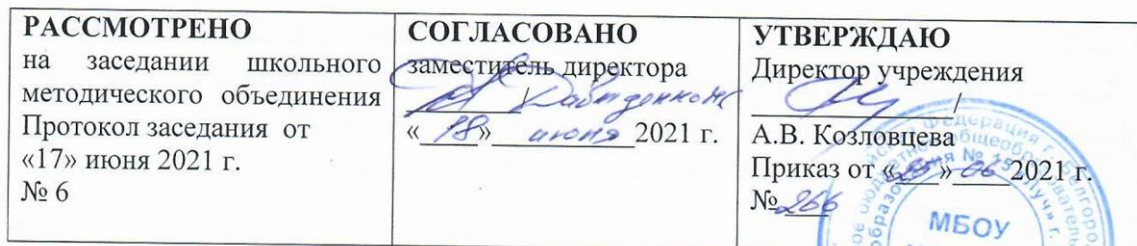 РАССМОТРЕНО
на заседании школьного
методического объединения
Протокол заседания от
«17» июня 2021 г.
№ 6
СОГЛАСОВАНО
заместитель директора
/
«18» июня 2021 г.
УТВЕРЖДАЮ
Директор учреждения
/
А.В. Козловцева
Приказ от « » 06 2021 г.
№ 266
МБОУ